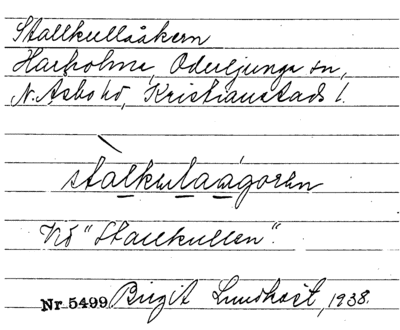 Stallkullaåkern
Harholma, Oderljunga sn,
N. Åsbo hd, Kristianstads l.
stalkulaågorən
Vid "Stallkullen".
Nr 5499 Birgit Lundkvist, 1938.